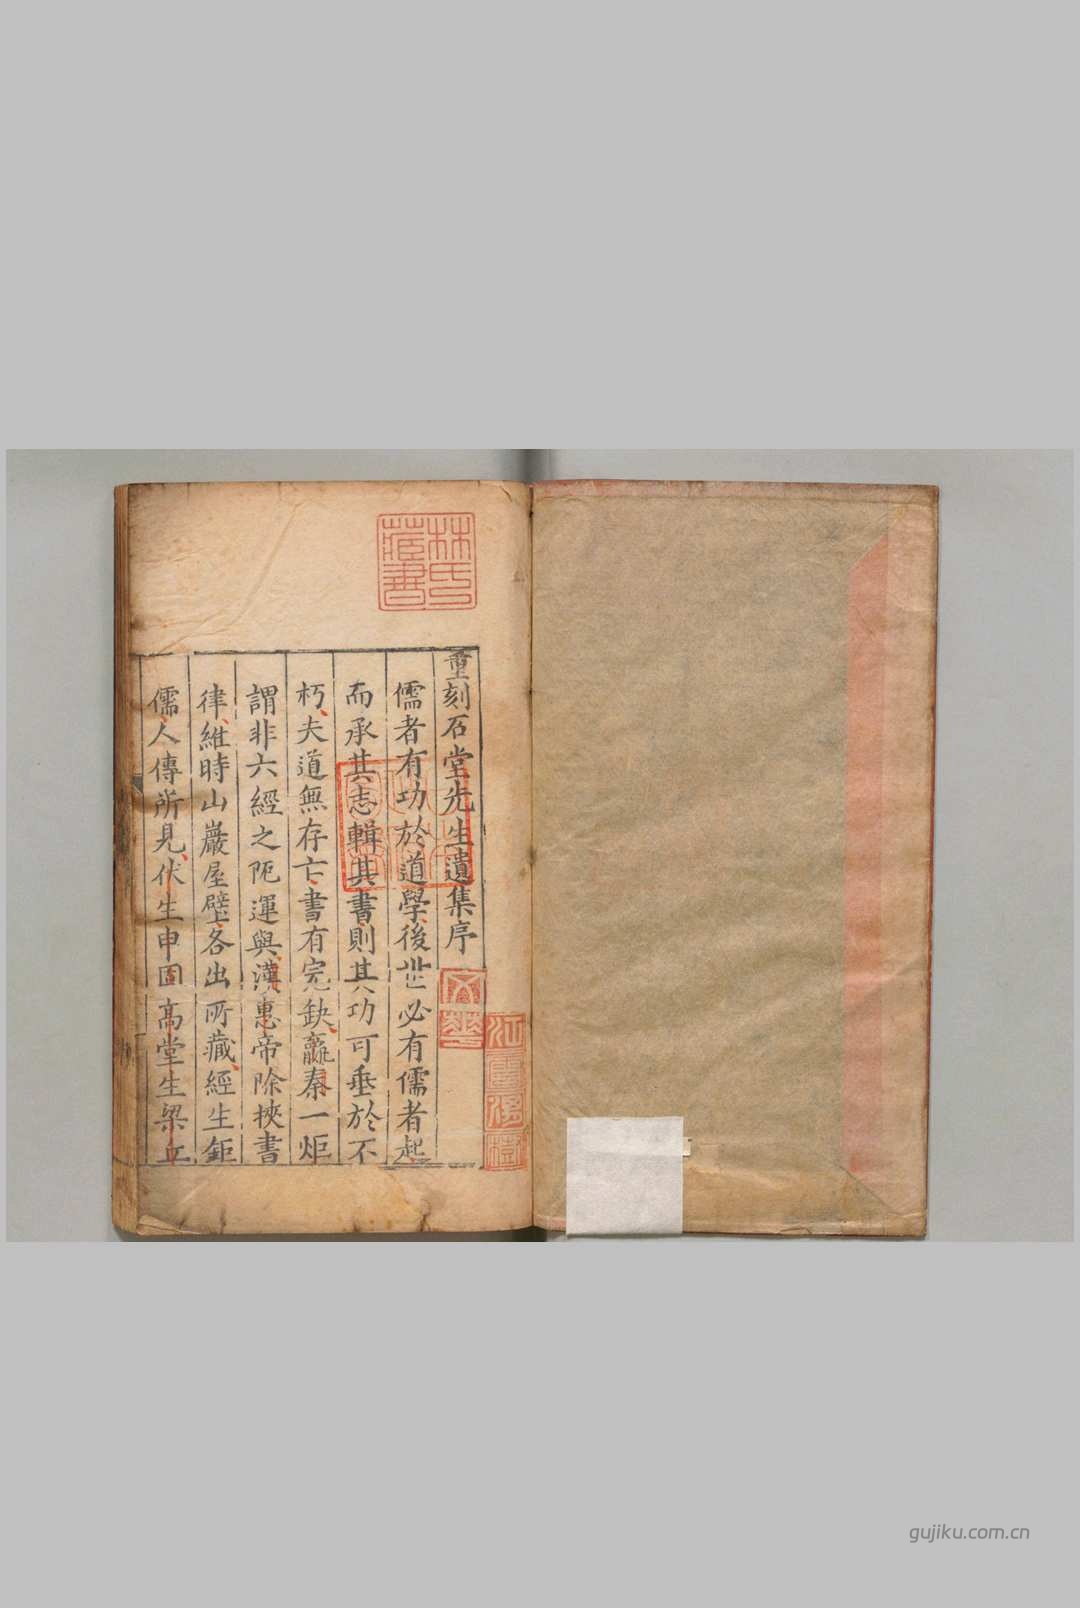 重刻石堂先生遺集序
儒者有功於道學後世必有儒者起
而承其志輯其書則其功可垂於不
朽夫道無存亡書有完缺嬴秦一炬
謂非六經之阨運與漢惠帝除挾書
律維時山巖屋壁各出所藏經生鉅
儒人傳所見伏生申固高堂生梁丘
林氏藏書
gujiku.com.cn